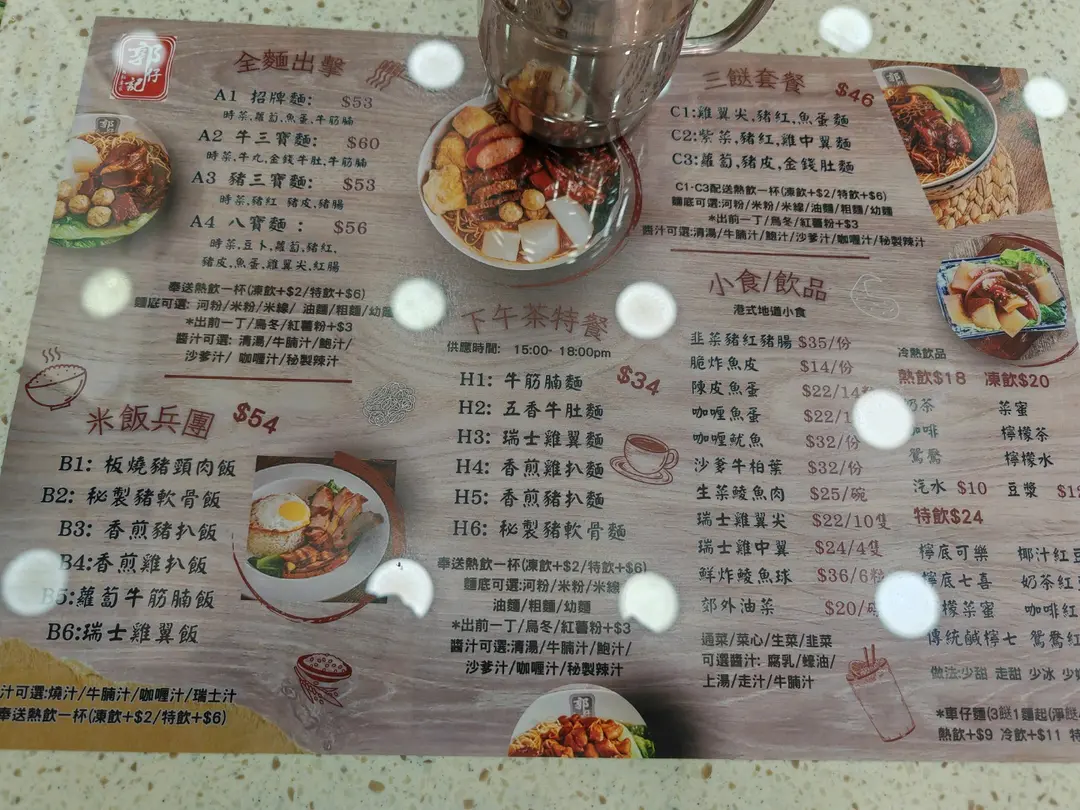 郭仔記
全麵出擊
A1 招牌麵: $53
時菜,蘿蔔,魚蛋,牛筋腩
A2 牛三寶麵: $60
時菜,牛丸,金錢牛肚,牛筋腩
A3 豬三寶麵: $53
時菜,豬紅 豬皮,豬腸
A4 八寶麵: $56
時菜,豆卜,蘿蔔,豬紅,
豬皮,魚蛋,雞翼尖,紅腸
奉送熱飲一杯(凍飲+$2/特飲+$6)
麵底可選: 河粉/米粉/米線/ 油麵/粗麵/幼
*出前一丁/烏冬/紅薯粉+$3
醬汁可選: 清湯/牛腩汁/鮑汁/
沙爹汁/ 咖喱汁/秘製辣汁
米飯兵團 $54
B1: 板燒豬頸肉飯
B2: 秘製豬軟骨飯
B3: 香煎豬扒飯
B4:香煎雞扒飯
B5:蘿蔔牛筋腩飯
B6:瑞士雞翼飯
汁可選:燒汁/牛腩汁/咖喱汁/瑞士汁
奉送熱飲一杯(凍飲+$2/特飲+$6)
下午茶特餐
供應時間: 15:00- 18:00pm
$34
H1: 牛筋腩麵
H2: 五香牛肚麵
H3: 瑞士雞翼麵
H4: 香煎雞扒麵
H5: 香煎豬扒麵
H6: 秘製豬軟骨麵
奉送熱飲一杯(凍飲+$2/特飲+$6)
麵底可選:河粉/米粉/米線
油麵/粗麵/幼麵
*出前一丁/烏冬/紅薯粉+$3
醬汁可選:清湯/牛腩汁/鮑汁/
沙爹汁/咖喱汁/秘製辣汁
三餸套餐 $46
C1:雞翼尖,豬紅,魚蛋麵
C2:紫菜,豬紅,雞中翼麵
C3:蘿蔔,豬皮,金錢肚麵
C1-C3配送熱飲一杯(凍飲+$2/特飲+$6)
麵底可選:河粉/米粉/米線/油麵/粗麵/幼麵
*出前一丁/烏冬/紅薯粉+$3
醬汁可選:清湯/牛腩汁/鮑汁/沙爹汁/咖喱汁/秘製辣汁
小食/飲品
港式地道小食
韭菜豬紅豬腸 $35/份
脆炸魚皮 $14/份
陳皮魚蛋 $22/14
咖喱魚蛋 $22/1
咖喱魷魚 $32/份
沙爹牛柏葉 $32/份
生菜鯪魚肉 $25/碗
瑞士雞翼尖 $22/10隻
瑞士雞中翼 $24/4隻
鮮炸鯪魚球 $36/6粒
郊外油菜 $20/
通菜/菜心/生菜/韭菜
可選醬汁: 腐乳/蠔油/
上湯/走汁/牛腩汁
冷熱飲品
熱飲$18 凍飲$20
奶茶 菜蜜
咖啡 檸檬茶
鴛鴦 檸檬水
汽水 $10 豆漿 $1
特飲$24
檸底可樂 椰汁紅豆
檸底七喜 奶茶紅
檬菜蜜 咖啡紅
傳統鹹檸七 鴛鴦紅
做法:少甜 走甜 少冰 少
*車仔麵(3餸1麵起(淨餸
熱飲+$9 冷飲+$11 特
郭
郭
郭
郭